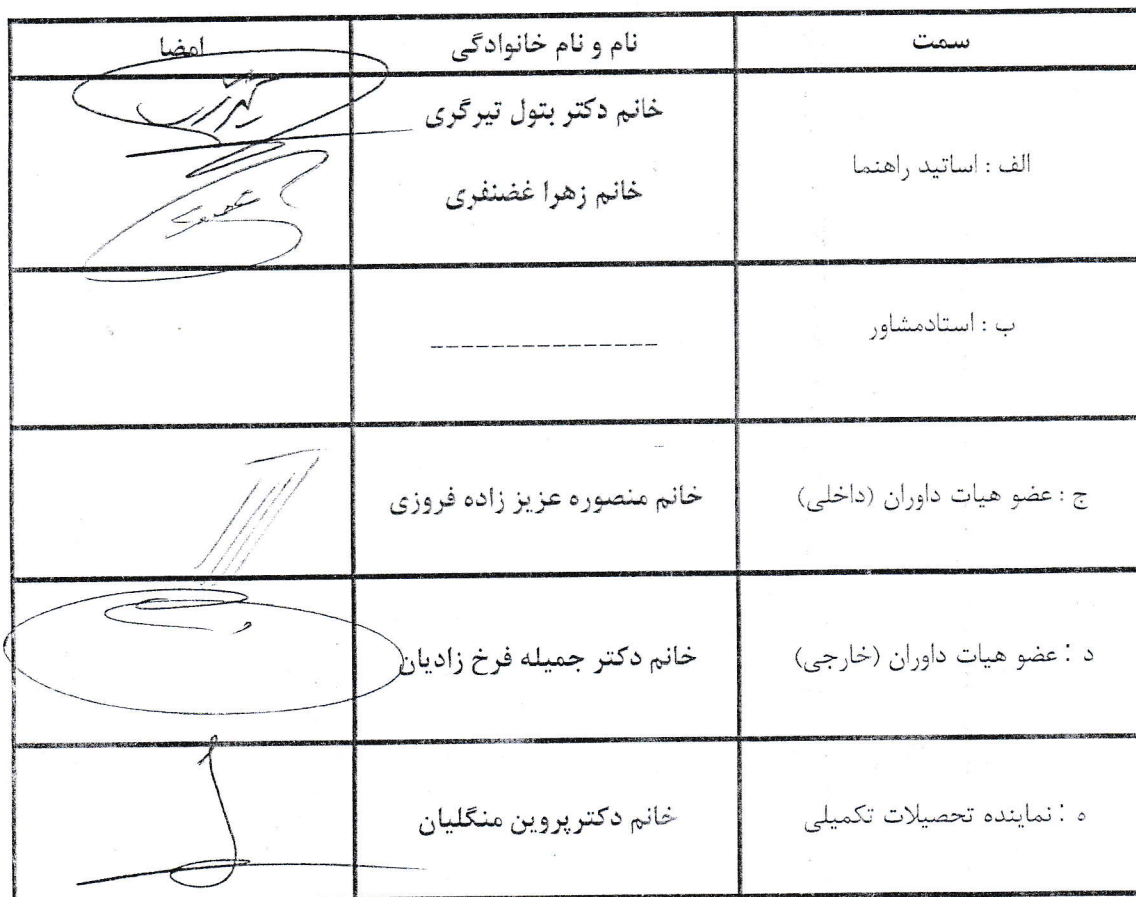 سمت
نام و نام خانوادگی
امضا
الف : اساتید راهنما
خانم دکتر بتول تیرگری
خانم زهرا غضنفری
ب : استادمشاور
---------------
ج : عضو هیات داوران (داخلی)
خانم منصوره عزیز زاده فروزی
د : عضو هیات داوران (خارجی)
خانم دکتر جمیله فرخ زادیان
ه : نماینده تحصیلات تکمیلی
خانم دکترپروین منگلیان